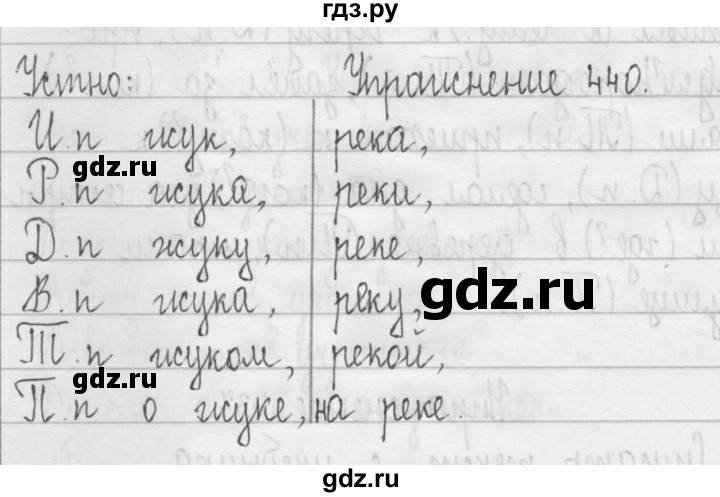 гдз.ру
Устно: Упражнение 440.
И.п жук, река,
gdz.ru
Р.п жука, реки,
Д.п жуку, реке,
В.п жука, реку,
gdz.ru
Т.п жуком, рекой,
gdz.ru
П.п о жуке, на реке.
gdz.ru